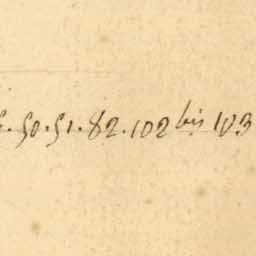 . 50. 51. 82. 102 bis 103